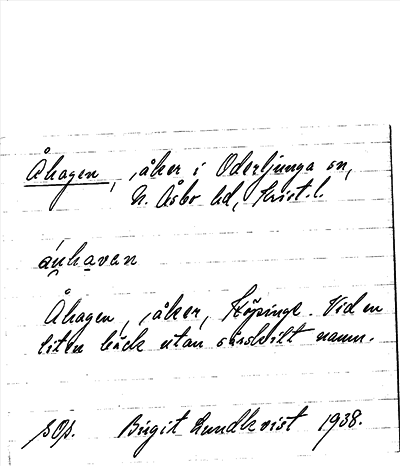 Åhagen, åker i Oderljunga sn,
N. Åsbo hd, Krist. l.
áụhavan
Åhagen, åker, Köpinge. Vid en
liten bäck utan särskilt namn.
sOp. Birgit Lundkvist 1938.